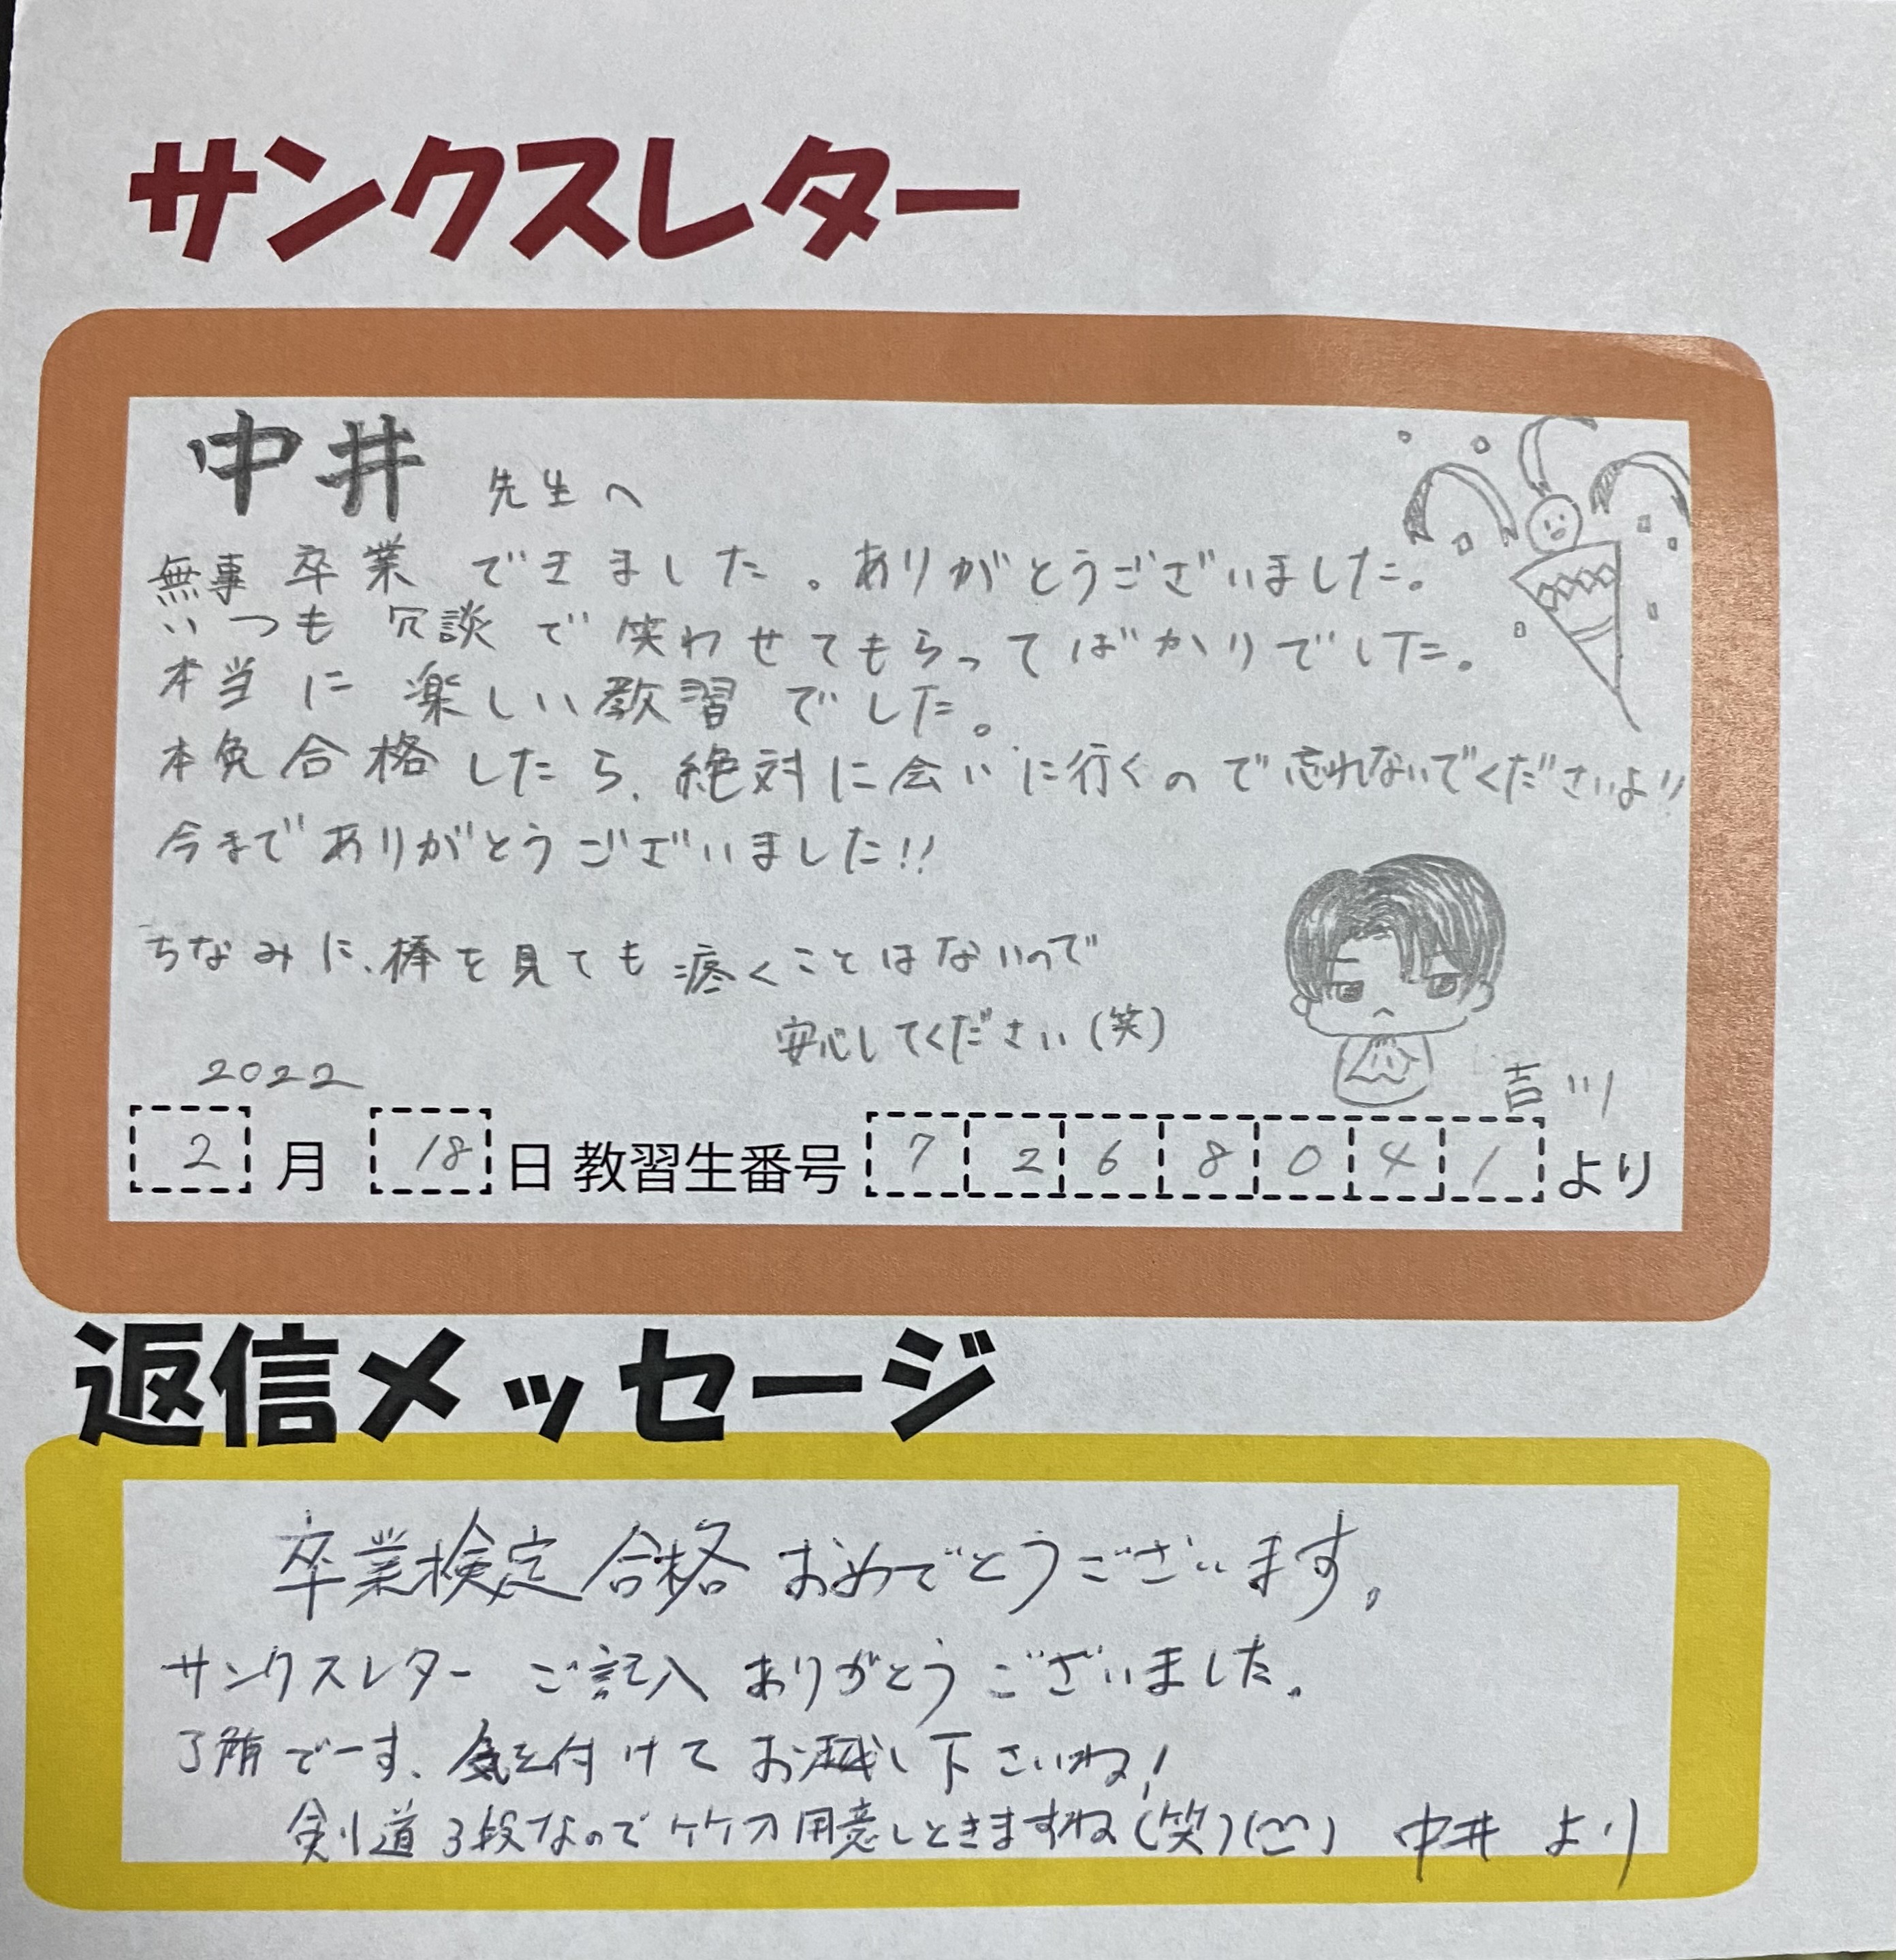 サンクスレター
中井 先生へ
無事卒業できました。ありがとうございました。
いつも冗談で笑わせてもらってばかりでした。
本当に楽しい教習でした。
本免合格したら、絶対に会いに行くので忘れないでくださいよ!!
今までありがとうございました!!
ちなみに、棒を見ても疼くことはないので
安心してください(笑)
吉川
2022
2月18日 教習生番号 7268041 より
返信メッセージ
卒業検定合格おめでとうございます。
サンクスレター ご記入ありがとうございました。
了解でーす、気を付けてお越し下さいね!
剣道3段なので竹刀用意しときますね(笑)(^^) 中井 より